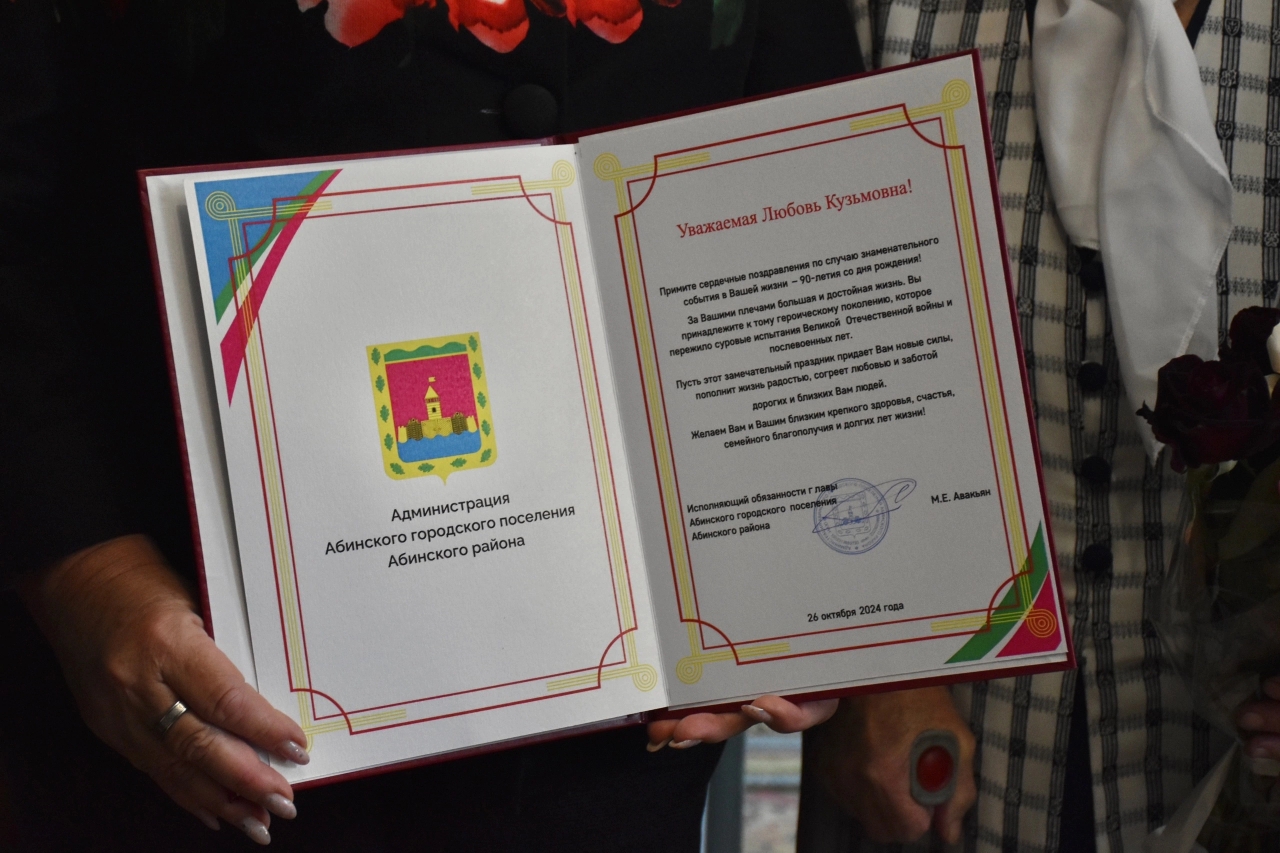 Администрация
Абинского городского поселения
Абинского района
Уважаемая Любовь Кузьмовна!
Примите сердечные поздравления по случаю знаменательного
события в Вашей жизни – 90-летия со дня рождения!
За Вашими плечами большая и достойная жизнь. Вы
принадлежите к тому героическому поколению, которое
пережило суровые испытания Великой Отечественной войны и
послевоенных лет.
Пусть этот замечательный праздник придает Вам новые силы,
пополнит жизнь радостью, согреет любовью и заботой
дорогих и близких Вам людей.
Желаем Вам и Вашим близким крепкого здоровья, счастья,
семейного благополучия и долгих лет жизни!
Исполняющий обязанности г лавы
Абинского городского поселения
Абинского района
М.Е. Авакьян
26 октября 2024 года